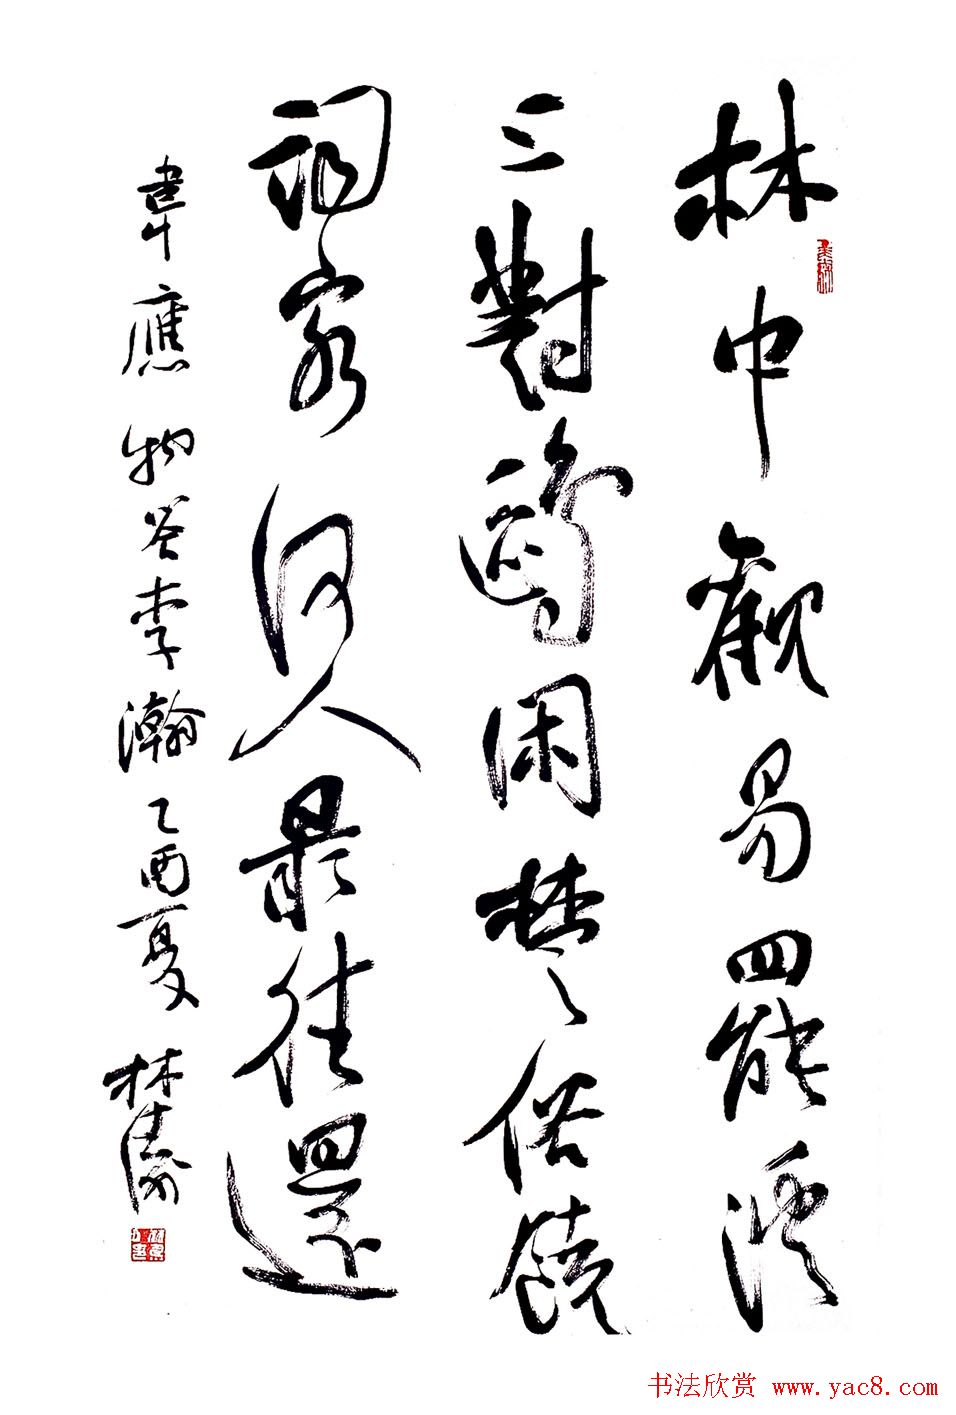 林中觀易罷溪
上對鷗閑楚俗饒
詞客何人最往還
韋應物答李瀚乙酉夏 林
书法欣赏 www.yac8.com